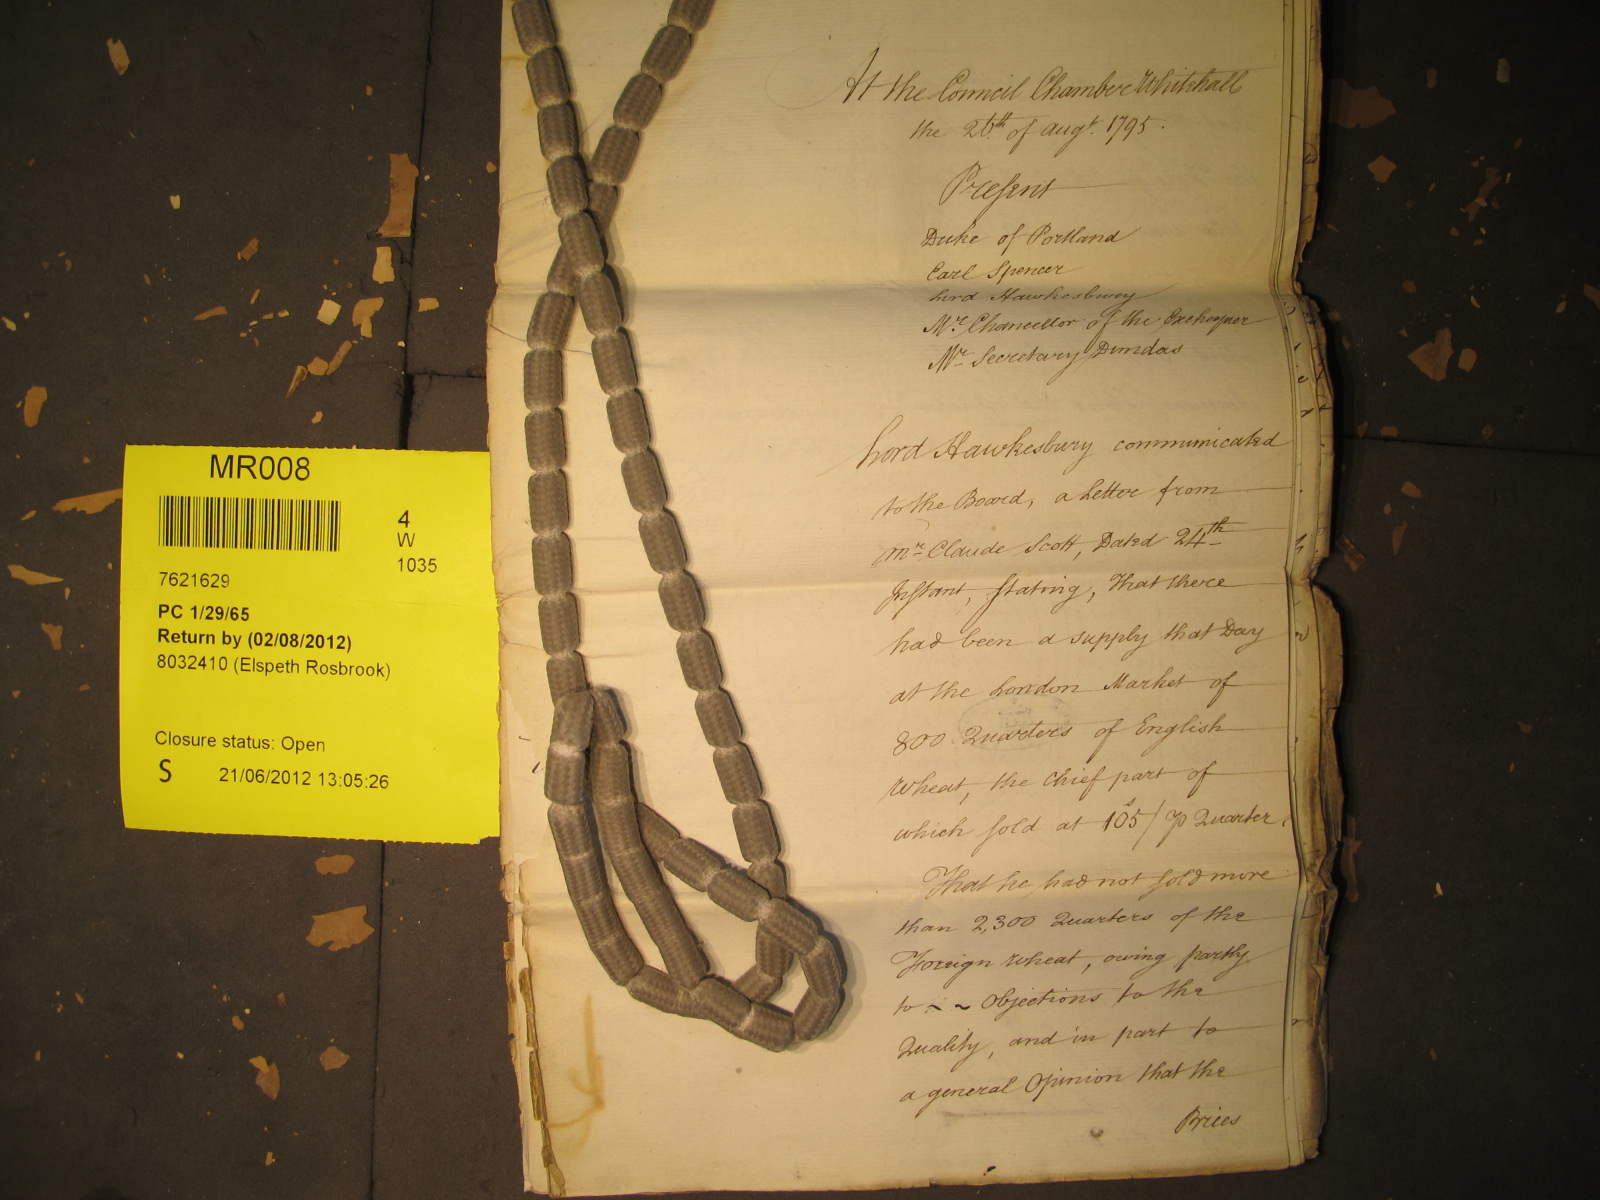 MR008
4
W
1035
7621629
PC 1/29/65
Return by (02/08/2012)
8032410 (Elspeth Rosbrook)
Closure status: Open
S 21/06/2012 13:05:26
At the Council Chamber Whitehall
the 26th of augt. 1795.
Present
Duke of Portland
Earl Spencer
Lord Hawkesbury
Mr. Chancellor of the Exchequer
Mr. Secretary Dundas
Lord Hawkesbury communicated
to the Board, a Letter from
Mr Claude Scott, Dated 24th
Instant, stating, That there
had been a supply that Day
at the London Market of
800 Quarters of English
Wheat, the Chief part of
which sold at 105s/ p Quarter
That he had not sold more
than 2,300 Quarters of the
Foreign Wheat, owing partly
to ~ ~ Objections to the
Quality, and in part to
a general Opinion that the
Prices